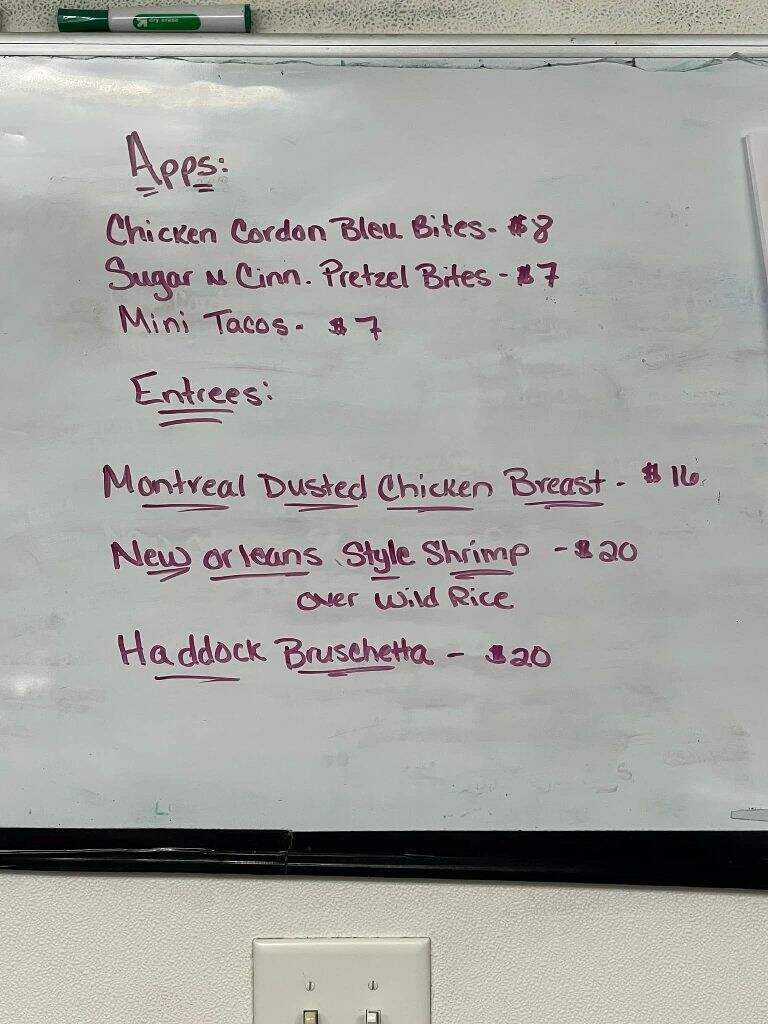 dry erase
Apps:
Chicken Cordon Bleu Bites- $8
Sugar N Cinn. Pretzel Bites - $7
Mini Tacos- $7
Entrees:
Montreal Dusted Chicken Breast - $16
New orleans Style Shrimp - $20
over Wild Rice
Haddock Bruschetta - $20